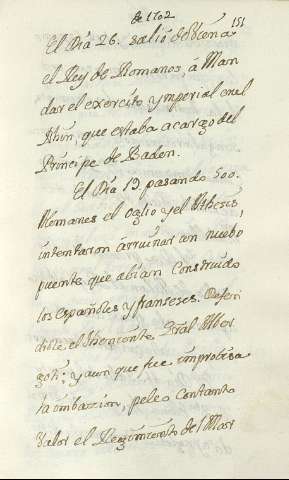 de 1702
151
El Dia 26. salio de Viena
el Rey de Romanos, á Man
dar el exercito ymperial en el
Rhin, que estaba acargo del
Principe de Baden.
El Dia 13 pasando 500.
Alemanes el Oglio y el Athesis
intentaron arruinar un nuebo
puente que abian construido
los españoles y franseses. Defen
diole el theniente Gral Alber
goti; y aun que fue improbisa
la imbasion, peleo con tanto
valor el Regimiento del Mar